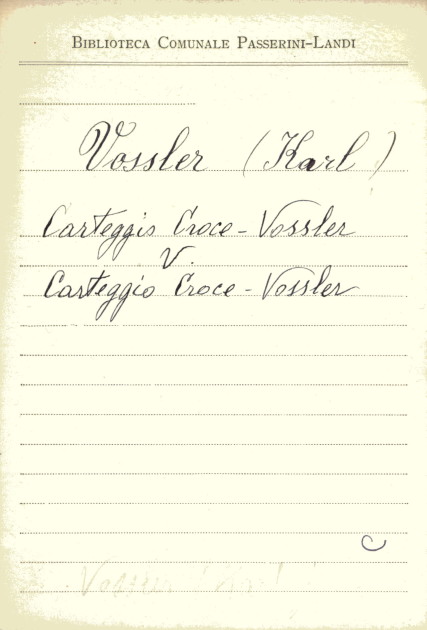 BIBLIOTECA COMUNALE PASSERINI-LANDI
Vossler (Karl)
Carteggio Croce - Vossler
V.
Carteggio Croce - Vossler
C